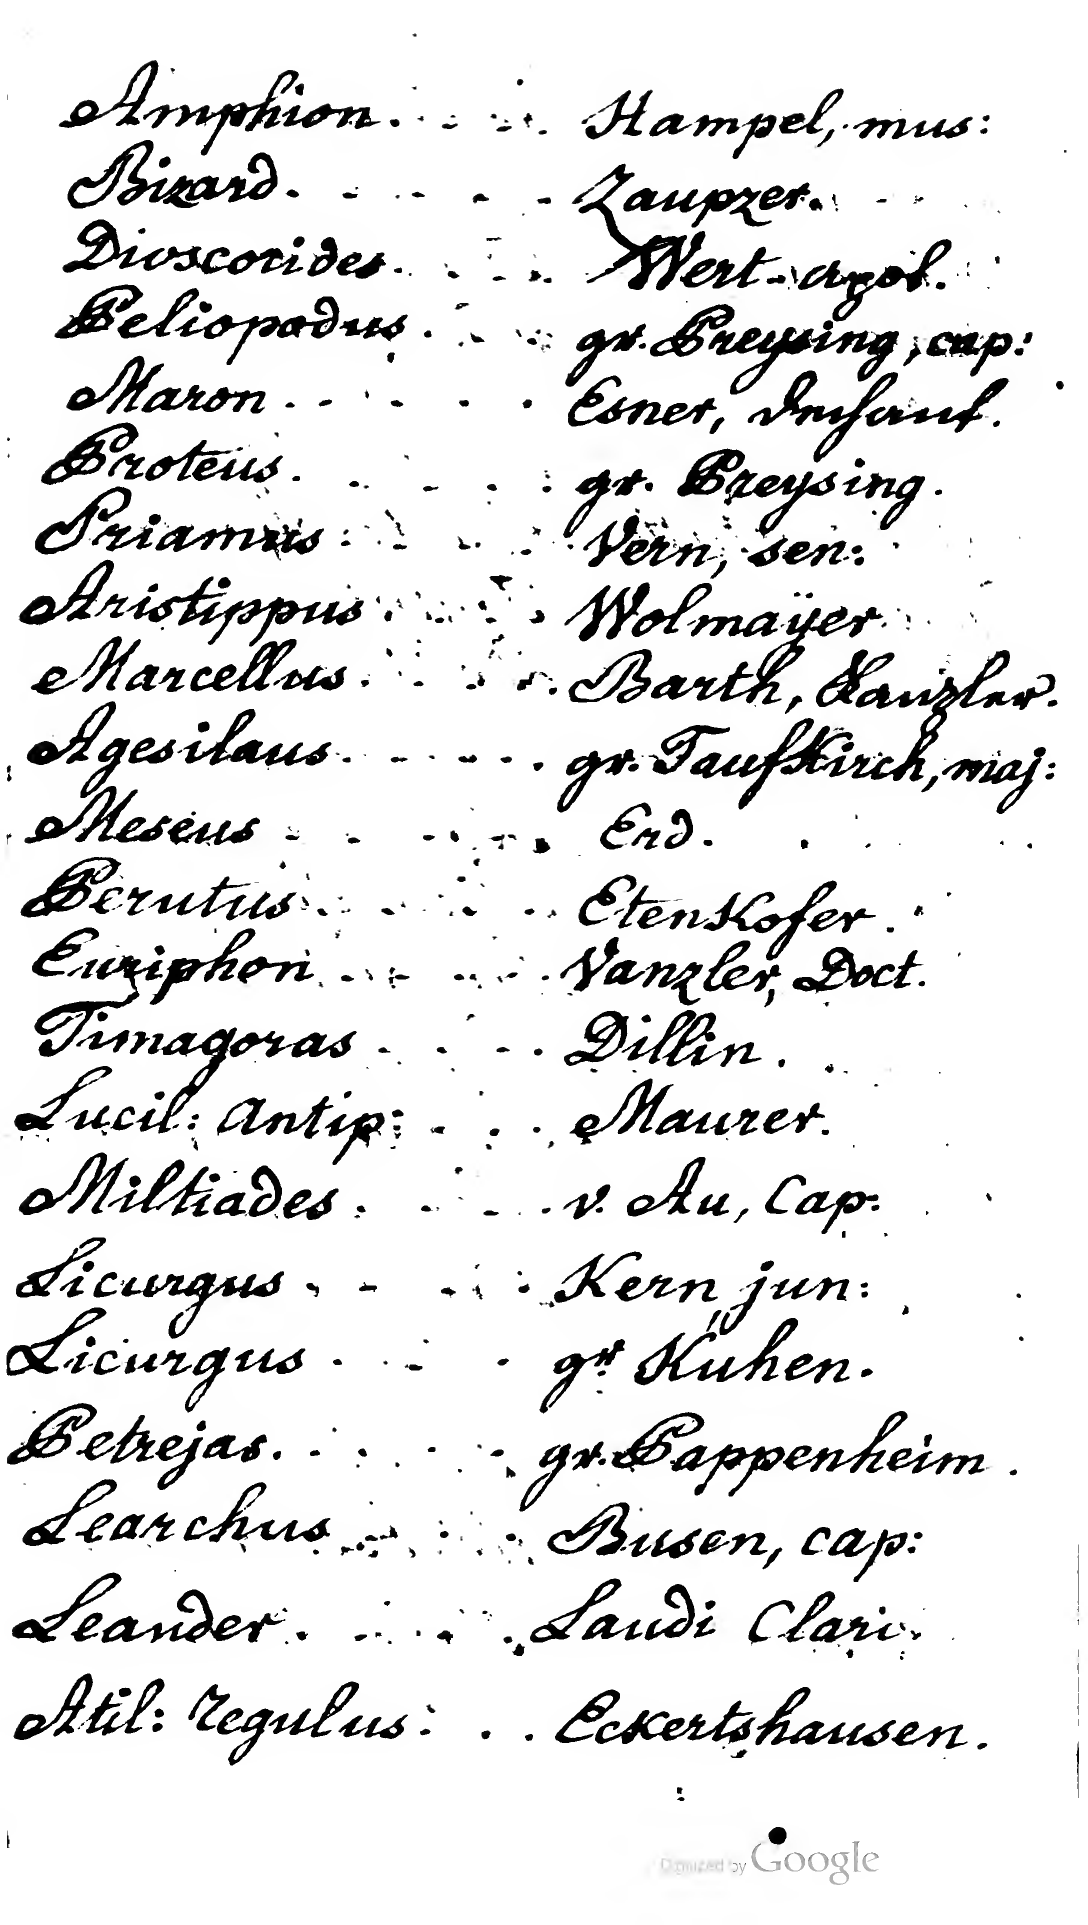 Amphion. . . . . Hampel, mus:
Bizard. - - - - - Zaupzer.
Dioscorides. . . . . Wert. apol.
Peliopodus . . . . gr. Preysing, cap:
Maron . . . . . . Esner, Dechant.
Proteus. . . . . : gr. Preysing.
Priamus : . . . . Vern, sen:
Aristippus . . . . Wolmayer
Marcellus . . . . . Barth, Kanzler.
Agesilaus . - - - . . gr. Taufkirch, maj:
Meseus - . - . . Erd.
Perutus . . . . . Etenkofer.
Euriphon . . . . . Vanzler, Doct.
Timagoras . . . . . Dillin.
Lucil: Antip: . . . Maurer.
Miltiades . . . . v. Au, Cap:
Licurgus . - . . . Kern, jun:
Licurgus . . . . gr. Kuhen.
Petrejas. . . . . . gr. Pappenheim.
Learchus . . . . . Busen, cap:
Leander . . . . . Laudi Clari.
Atil: Regulus: . . Eckertshausen.
Digitized by Google